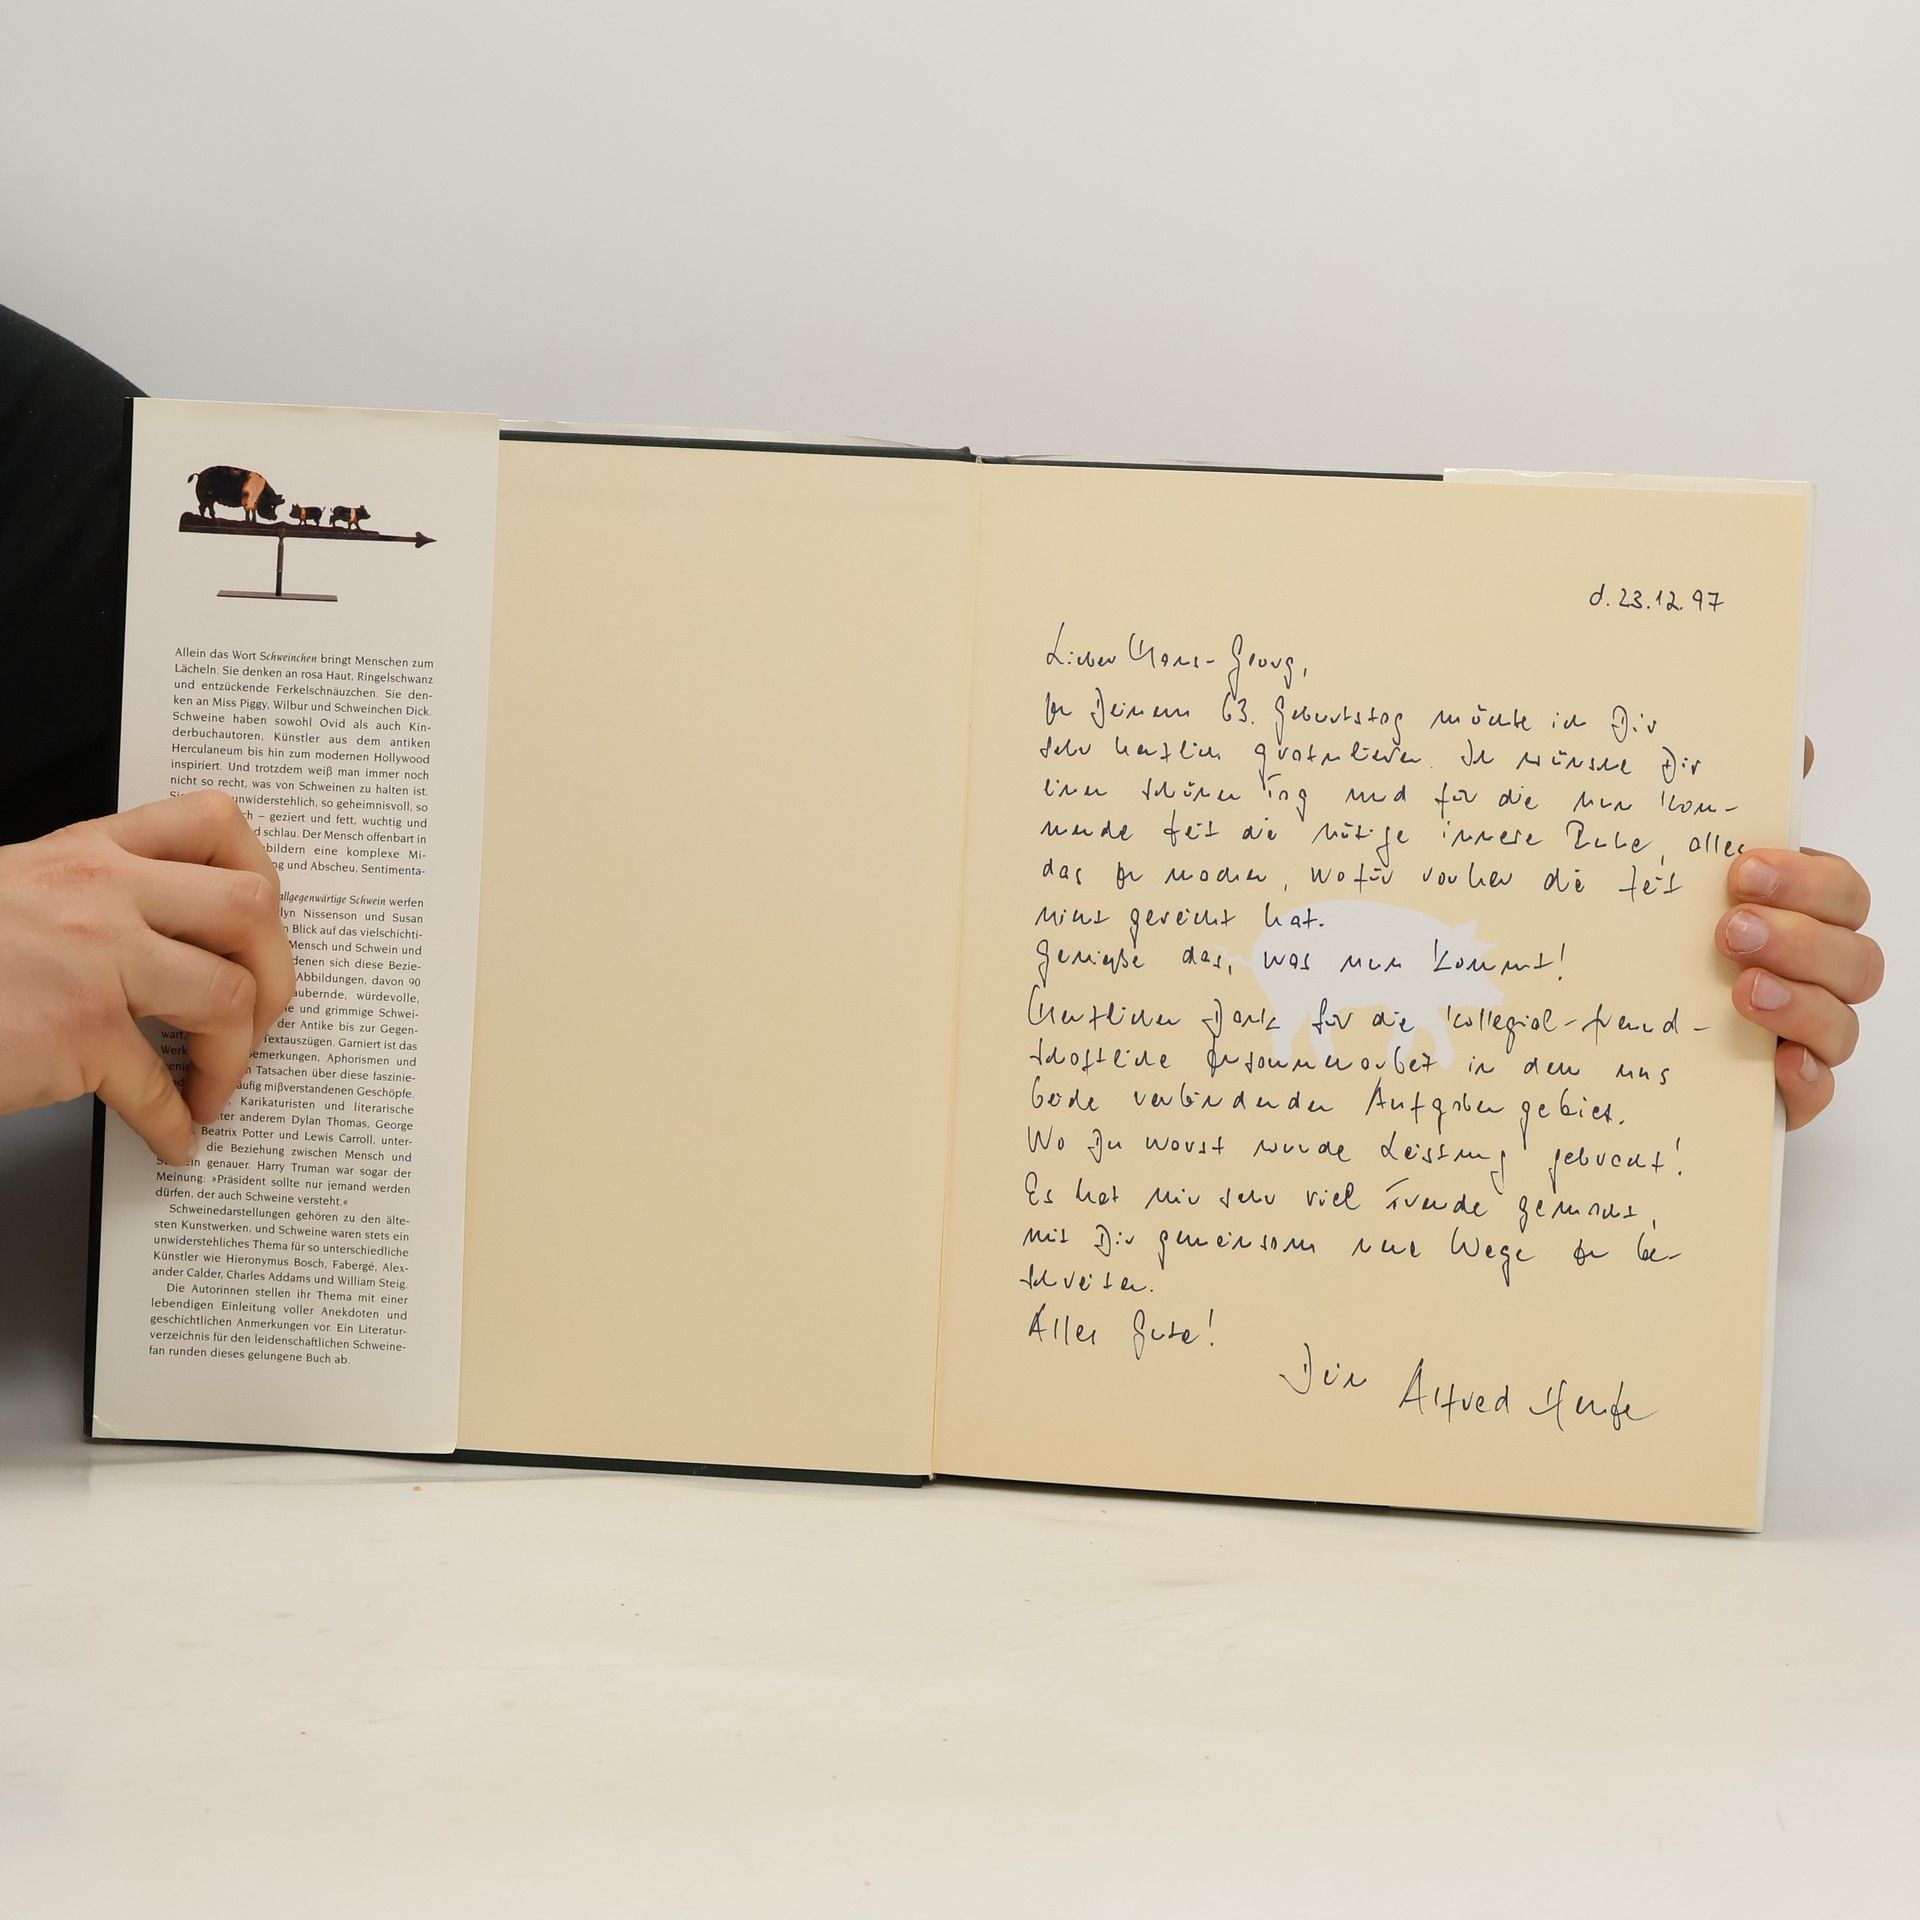 Allein das Wort Schweinchen bringt Menschen zum
Lächeln. Sie denken an rosa Haut, Ringelschwanz
und entzückende Ferkelschnäuzchen. Sie den-
ken an Miss Piggy, Wilbur und Schweinchen Dick.
Schweine haben sowohl Ovid als auch Kin-
derbuchautoren, Künstler aus dem antiken
Herculaneum bis hin zum modernen Hollywood
inspiriert. Und trotzdem weiß man immer noch
nicht so recht, was von Schweinen zu halten ist.
unwiderstehlich, so geheimnisvoll, so
– geziert und fett, wuchtig und
schlau. Der Mensch offenbart in
bildern eine komplexe Mi-
und Abscheu, Sentimenta-
allgegenwärtige Schwein werfen
lyn Nissenson und Susan
Blick auf das vielschichti-
Mensch und Schwein und
denen sich diese Bezie-
Abbildungen, davon 90
aubernde, würdevolle,
und grimmige Schwei-
der Antike bis zur Gegen-
wart. Textauszügen. Garniert ist das
Werk Bemerkungen, Aphorismen und
Tatsachen über diese faszinie-
äufig mißverstandenen Geschöpfe.
Karikaturisten und literarische
unter anderem Dylan Thomas, George
Beatrix Potter und Lewis Carroll, unter-
die Beziehung zwischen Mensch und
Schwein genauer. Harry Truman war sogar der
Meinung: »Präsident sollte nur jemand werden
dürfen, der auch Schweine versteht.«
Schweinedarstellungen gehören zu den älte-
sten Kunstwerken, und Schweine waren stets ein
unwiderstehliches Thema für so unterschiedliche
Künstler wie Hieronymus Bosch, Fabergé, Alex-
ander Calder, Charles Addams und William Steig.
Die Autorinnen stellen ihr Thema mit einer
lebendigen Einleitung voller Anekdoten und
geschichtlichen Anmerkungen vor. Ein Literatur-
verzeichnis für den leidenschaftlichen Schweine-
fan runden dieses gelungene Buch ab.
d. 23.12.97
Lieber Hans-Georg,
zu Deinem 63. Geburtstag möchte ich Dir
sehr herzlich gratulieren. Ich wünsche Dir
einen schönen Tag und für die nun kom-
mende Zeit die nötige innere Ruhe, alles
das zu machen, wofür vorher die Zeit
nicht gereicht hat.
Genieße das, was nun kommt!
Herzlichen Dank für die kollegial-freund-
schaftliche Zusammenarbeit in dem uns
beide verbindenden Aufgabengebiet.
Wo Du warst wurde Leistung gebracht!
Es hat mir sehr viel Freude gemacht,
mit Dir gemeinsam neue Wege zu be-
schreiten.
Alles Gute!
Dein Alfred